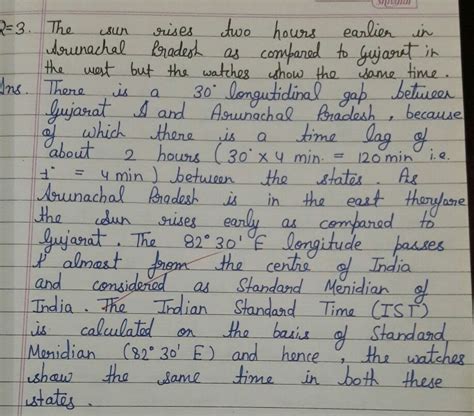 shivalal
Q=3. The sun rises two hours earlier in
Arunachal Pradesh as compared to Gujarat in
the west but the watches show the same time.
Ans. There is a 30° longutidinal gap between
Gujarat & and Arunachal Pradesh, because
of which there is a time lag of
about 2 hours (30° x 4 min. = 120 min i.e.
1° = 4 min) between the states. As
Arunachal Pradesh is in the east therefore
the sun rises early as compared to
Gujarat. The 82° 30' E longitude passes
almost from the centre of India
and considered as Standard Meridian of
India. The Indian Standard Time (IST)
is calculated on the basis of Standard
Meridian (82° 30' E) and hence, the watches
show the same time in both these
states.